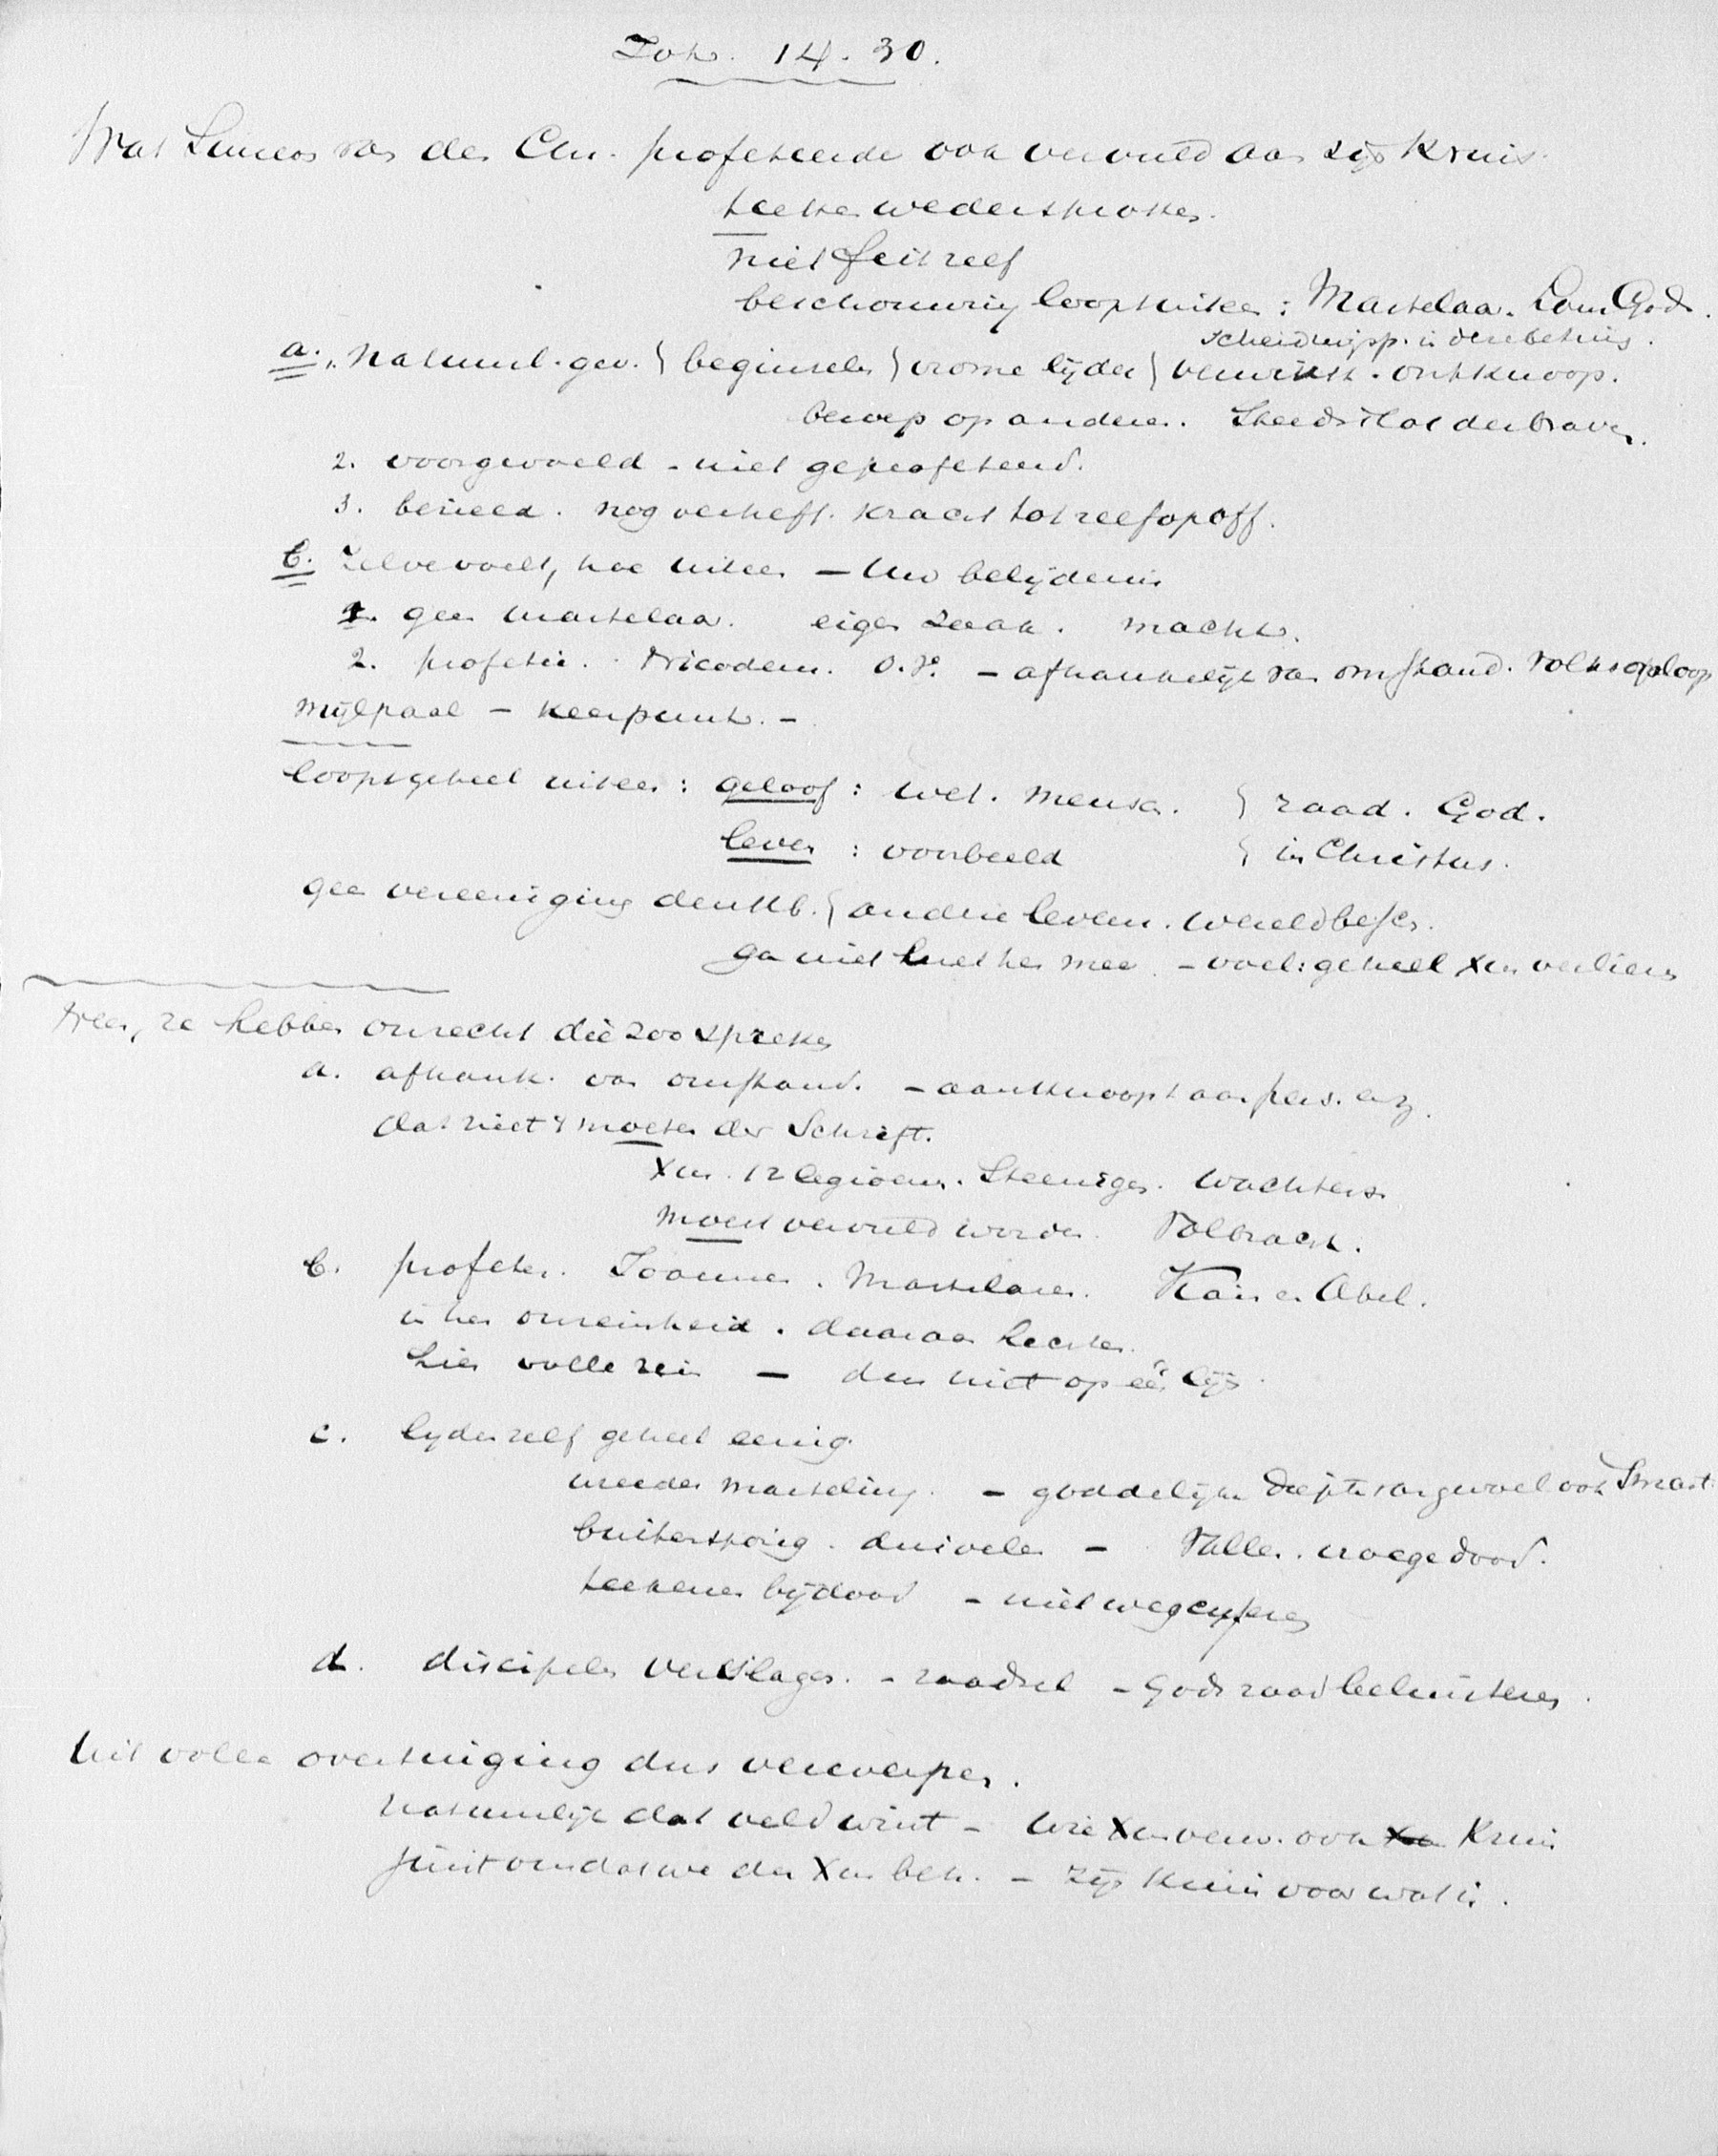 Joh. 14.30.
Wat Simeon van den Chr. profeteerde ook vervuld aan zijn Kruis.
teeken wedersproken.
niet feit zelf
beschouwing loopt uiteen : Martelaar. Lam Gods.
scheidingsp. in der betuis.
a. 1. natuurl. gev. } beginselen } vrome lijder } verwikk. ontknoop.
beroep op anderen. Steeds lot der braven.
2. voorgevoeld - niet geprofeteerd.
3. bezield. nog verheff. kracht tot zelfopoff.
b. Zelve voelt, hoe uiteen - Uw belijdenis
1. geen martelaar. eigen zaak. macht.
2. profetie. Nicodem. O.V. - afhankelijk van omstand. Volksoploop
mijlpaal - keerpunt. -
loopt geheel uiteen : geloof : wet. mensch. } raad. God.
leven : voorbeeld } in Christus.
geen vereeniging denkb. } andere leven. wereldbesch.
ga niet met hen mee. - voel: geheel Xus verliezen
Neen, ze hebben onrecht die zoo spreken
a. afhank. van omstand. - aanknoopt aan pers. enz.
dat niet 't moeten der Schrift.
Xus. 12 legioenen. Steenigen. Wachters.
moest vervuld worden. Volbracht.
b. profeten. Joannes. Martelaren. Kain en Abel.
in hen onreinheid. daaraan hechten.
hier volle rein - dus niet op één lijn.
c. lijden zelf geheel eenig.
wreeder marteling. - goddelijke diepte van gevoel ook Smart.
buitensporig. duivelen - Vallen. vroege dood.
teekenen bij dood - niet wegcijferen
d. discipelen verslagen. - raadsel - Gods raad beluisteren.
Uit volle overtuiging dus verwerpen.
natuurlijk dat veld wint - wie Xus verw. ook Kruis
juist omdat we den Xus bel. - zijn Kruis voor wat is.